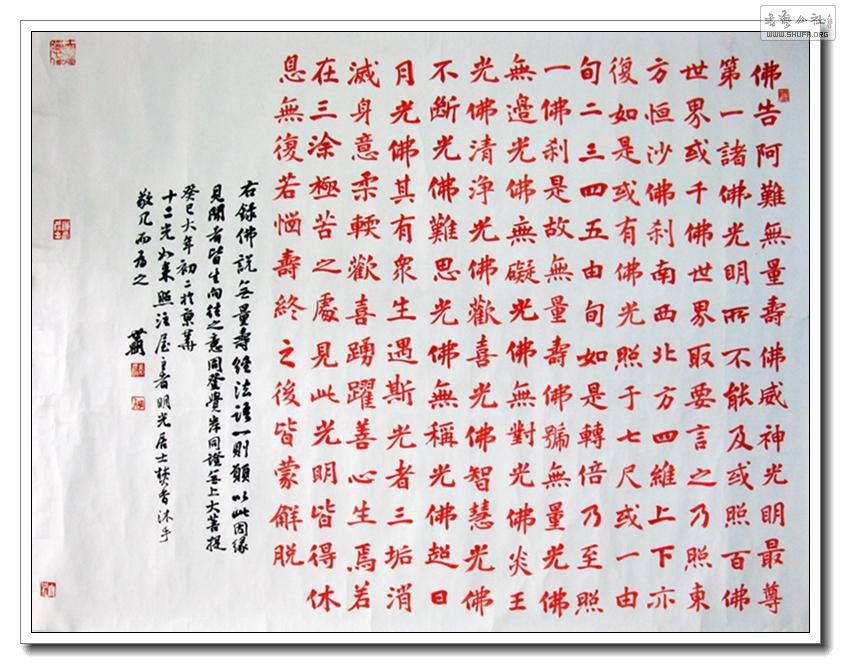 佛告阿難無量壽佛威神光明最尊
第一諸佛光明所不能及或照百佛
世界或千佛世界取要言之乃照東
方恒沙佛刹南西北方四維上下亦
復如是或有佛光照于七尺或一由
旬二三四五由旬如是轉倍乃至照
一佛刹是故無量壽佛號無量光佛
無邊光佛無礙光佛無對光佛炎王
光佛清浄光佛歡喜光佛智慧光佛
不斷光佛難思光佛無稱光佛超日
月光佛其有衆生遇斯光者三垢消
滅身意柔輭歡喜踴躍善心生焉若
在三塗極苦之處見此光明皆得休
息無復若惱壽終之後皆蒙解脱
右録佛説无量壽經法語一則願以此因緣
見聞者皆生向往之意同登覺岸同證无上大菩提
癸巳大年初二於京華
十二光如來照注屋主者明光居士焚香沐手
敬几而为之
書法公社
WWW.SHUFA.ORG